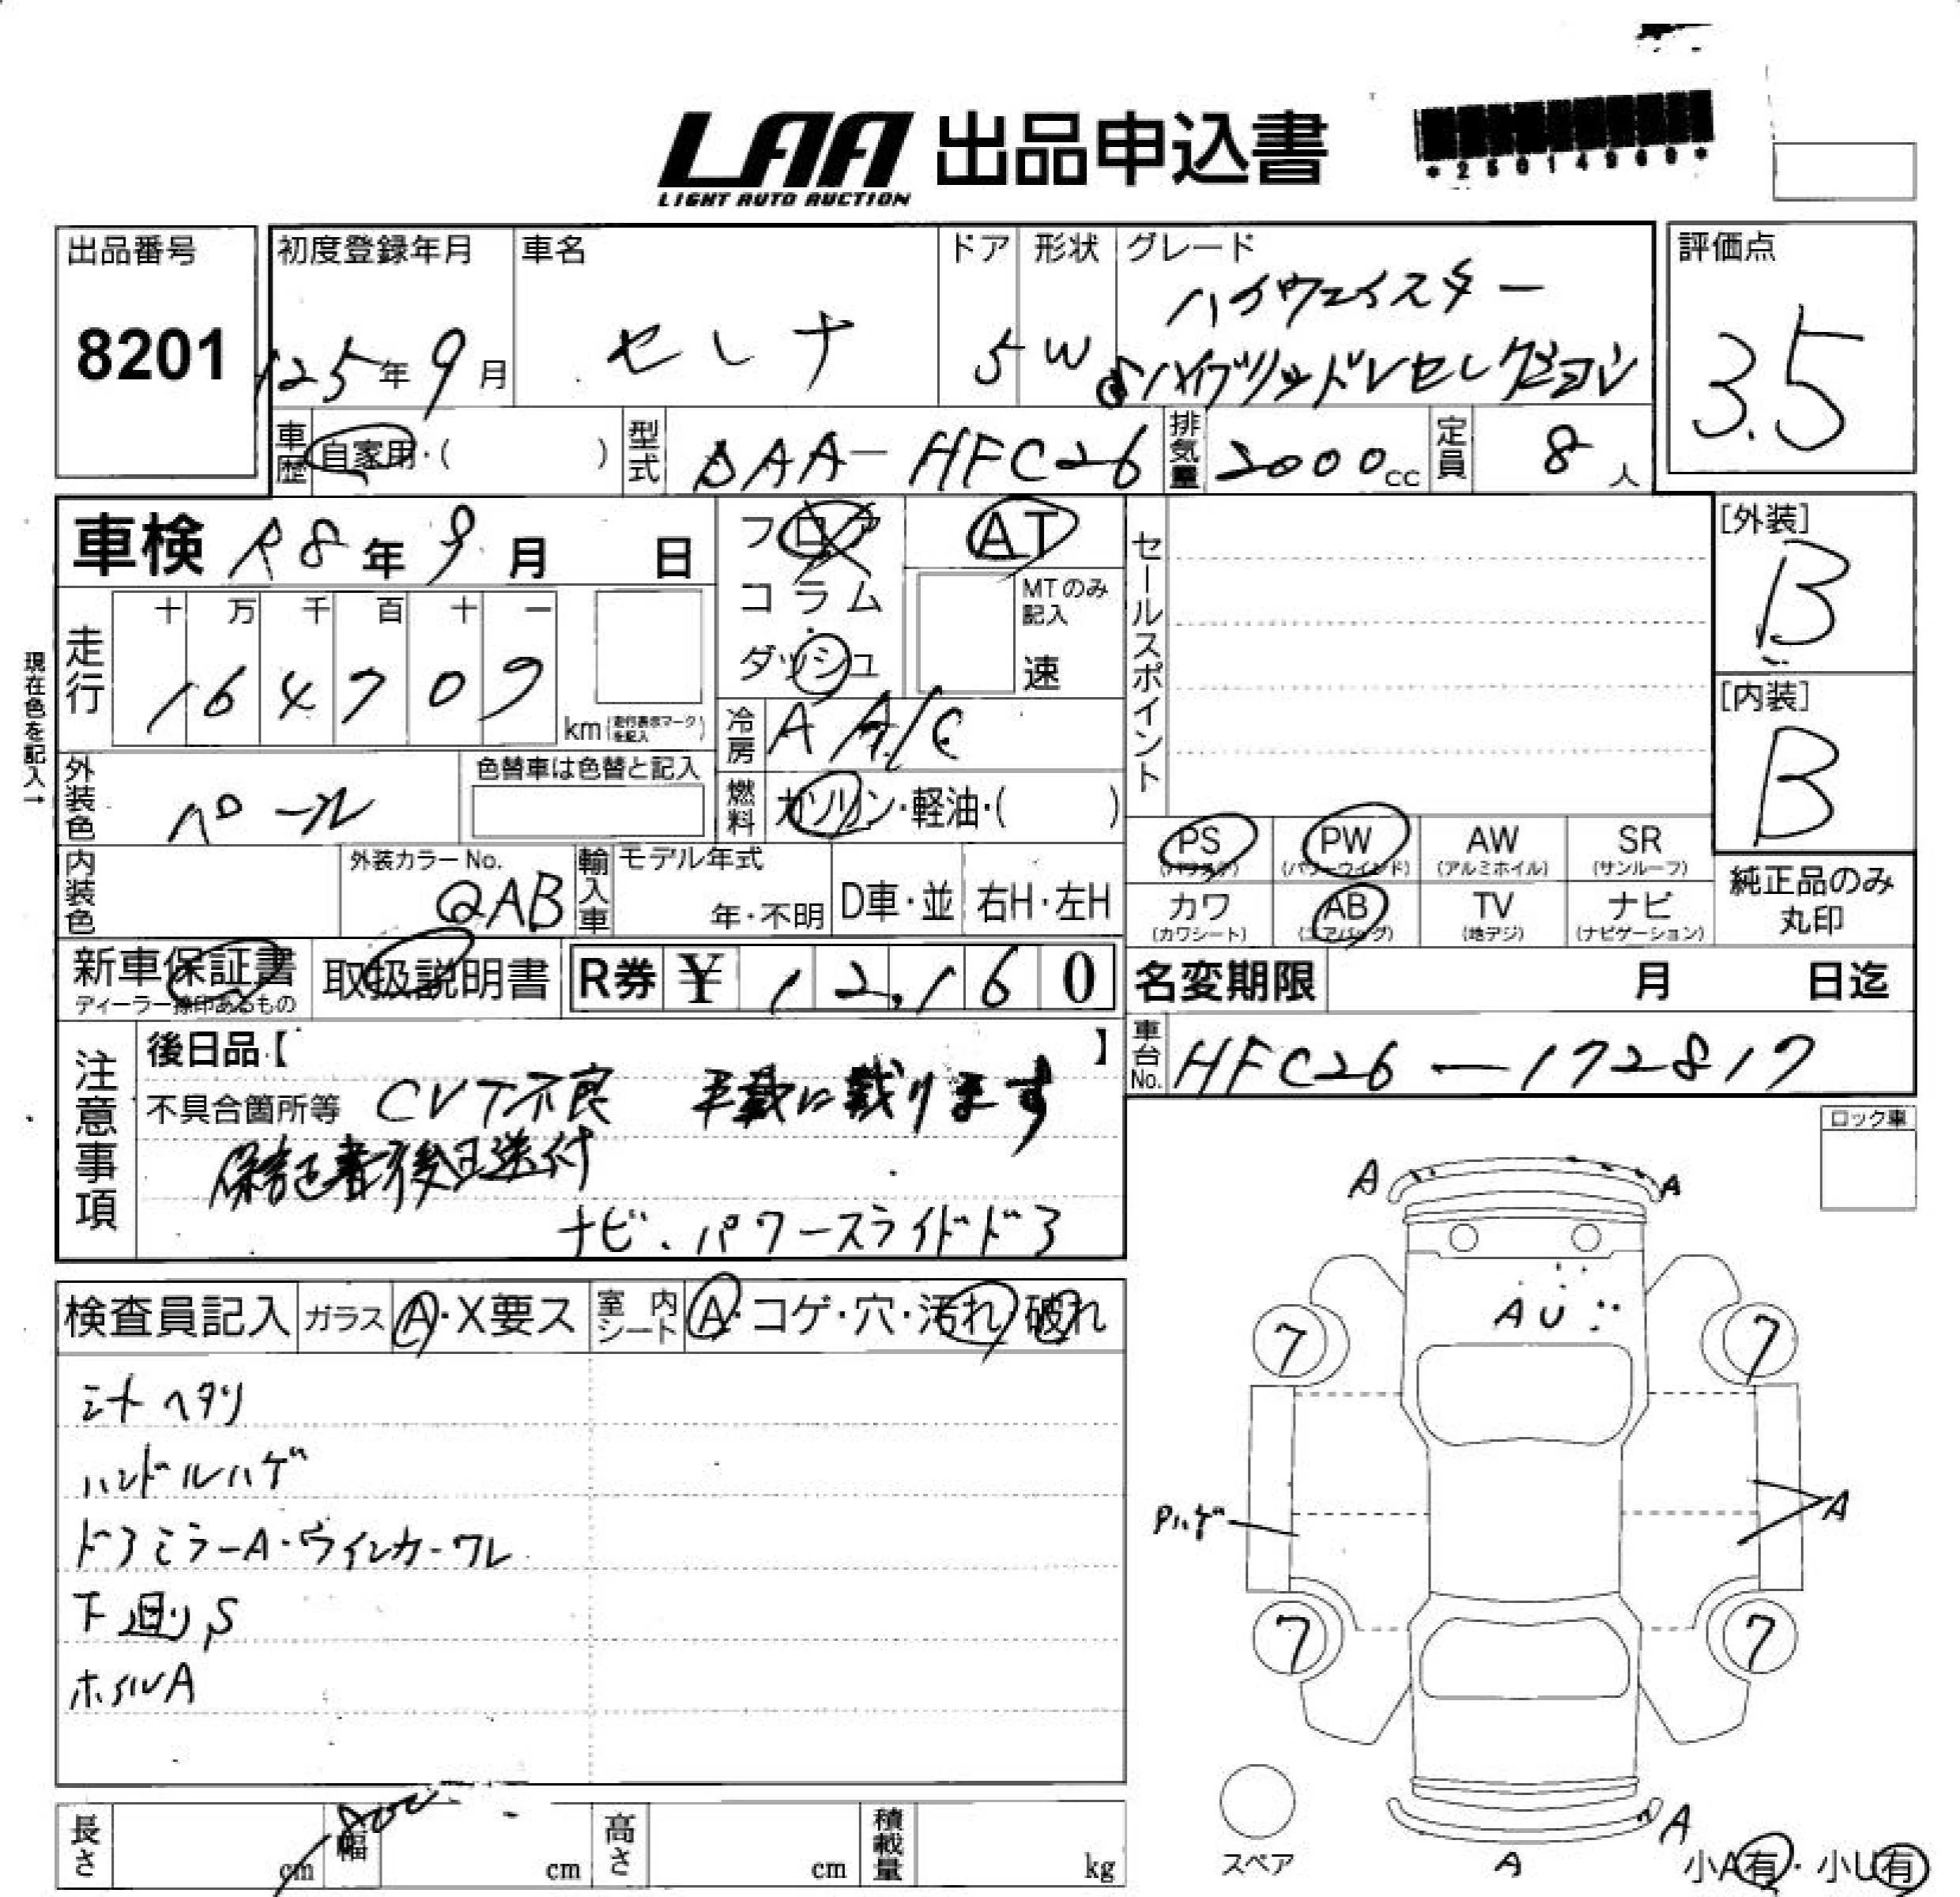 LAA 出品申込書
LIGHT AUTO AUCTION
*25014969*
出品番号 初度登録年月 車名 ドア 形状 グレード 評価点
8201 H25年9月 セレナ 5 W ハイウェイスター
Sハイブリッド Vセレクション
3.5
車歴 自家用・( ) 型式 DAA-HFC26 排気量 2000cc 定員 8人
車検 R8年9月 日 フロア AT セールスポイント [外装]
B
コラム MTのみ記入
ダッシュ 速
現在色を記入→
走行 十 万 千 百 十 一
1 6 4 7 0 7 km (走行表示マークを記入)
[内装]
B
冷房 A A/C
外装色 パール 色替車は色替と記入 燃料 ガソリン・軽油・( )
PS PW AW SR
(パワステ) (パワーウインド) (アルミホイル) (サンルーフ)
内装色 外装カラーNo. QAB 輸入車 モデル年式 年・不明 D車・並 右H・左H
カワ AB TV ナビ
(カワシート) (エアバッグ) (地デジ) (ナビゲーション)
純正品のみ
丸印
新車保証書 取扱説明書 R券 ¥ 12,160
ディーラー捺印あるもの
名変期限 月 日迄
車台No. HFC26-172817
注意事項 後日品【 】
不具合箇所等 CVT不良 平載に載ります
保証書後日送付
ナビ、パワースライドドア
ロック車
検査員記入 ガラス A・X要ス 室内シート A・コゲ・穴・汚れ 破れ
シートヘタリ
ハンドルハゲ
ドアミラーA・ウインカーワレ
下廻りS
ホイルA
A A
AU
7 7
Pハゲ A
7 7
A
A
スペア
小A有・小U有
長さ cm 幅 cm 高さ cm 積載量 kg